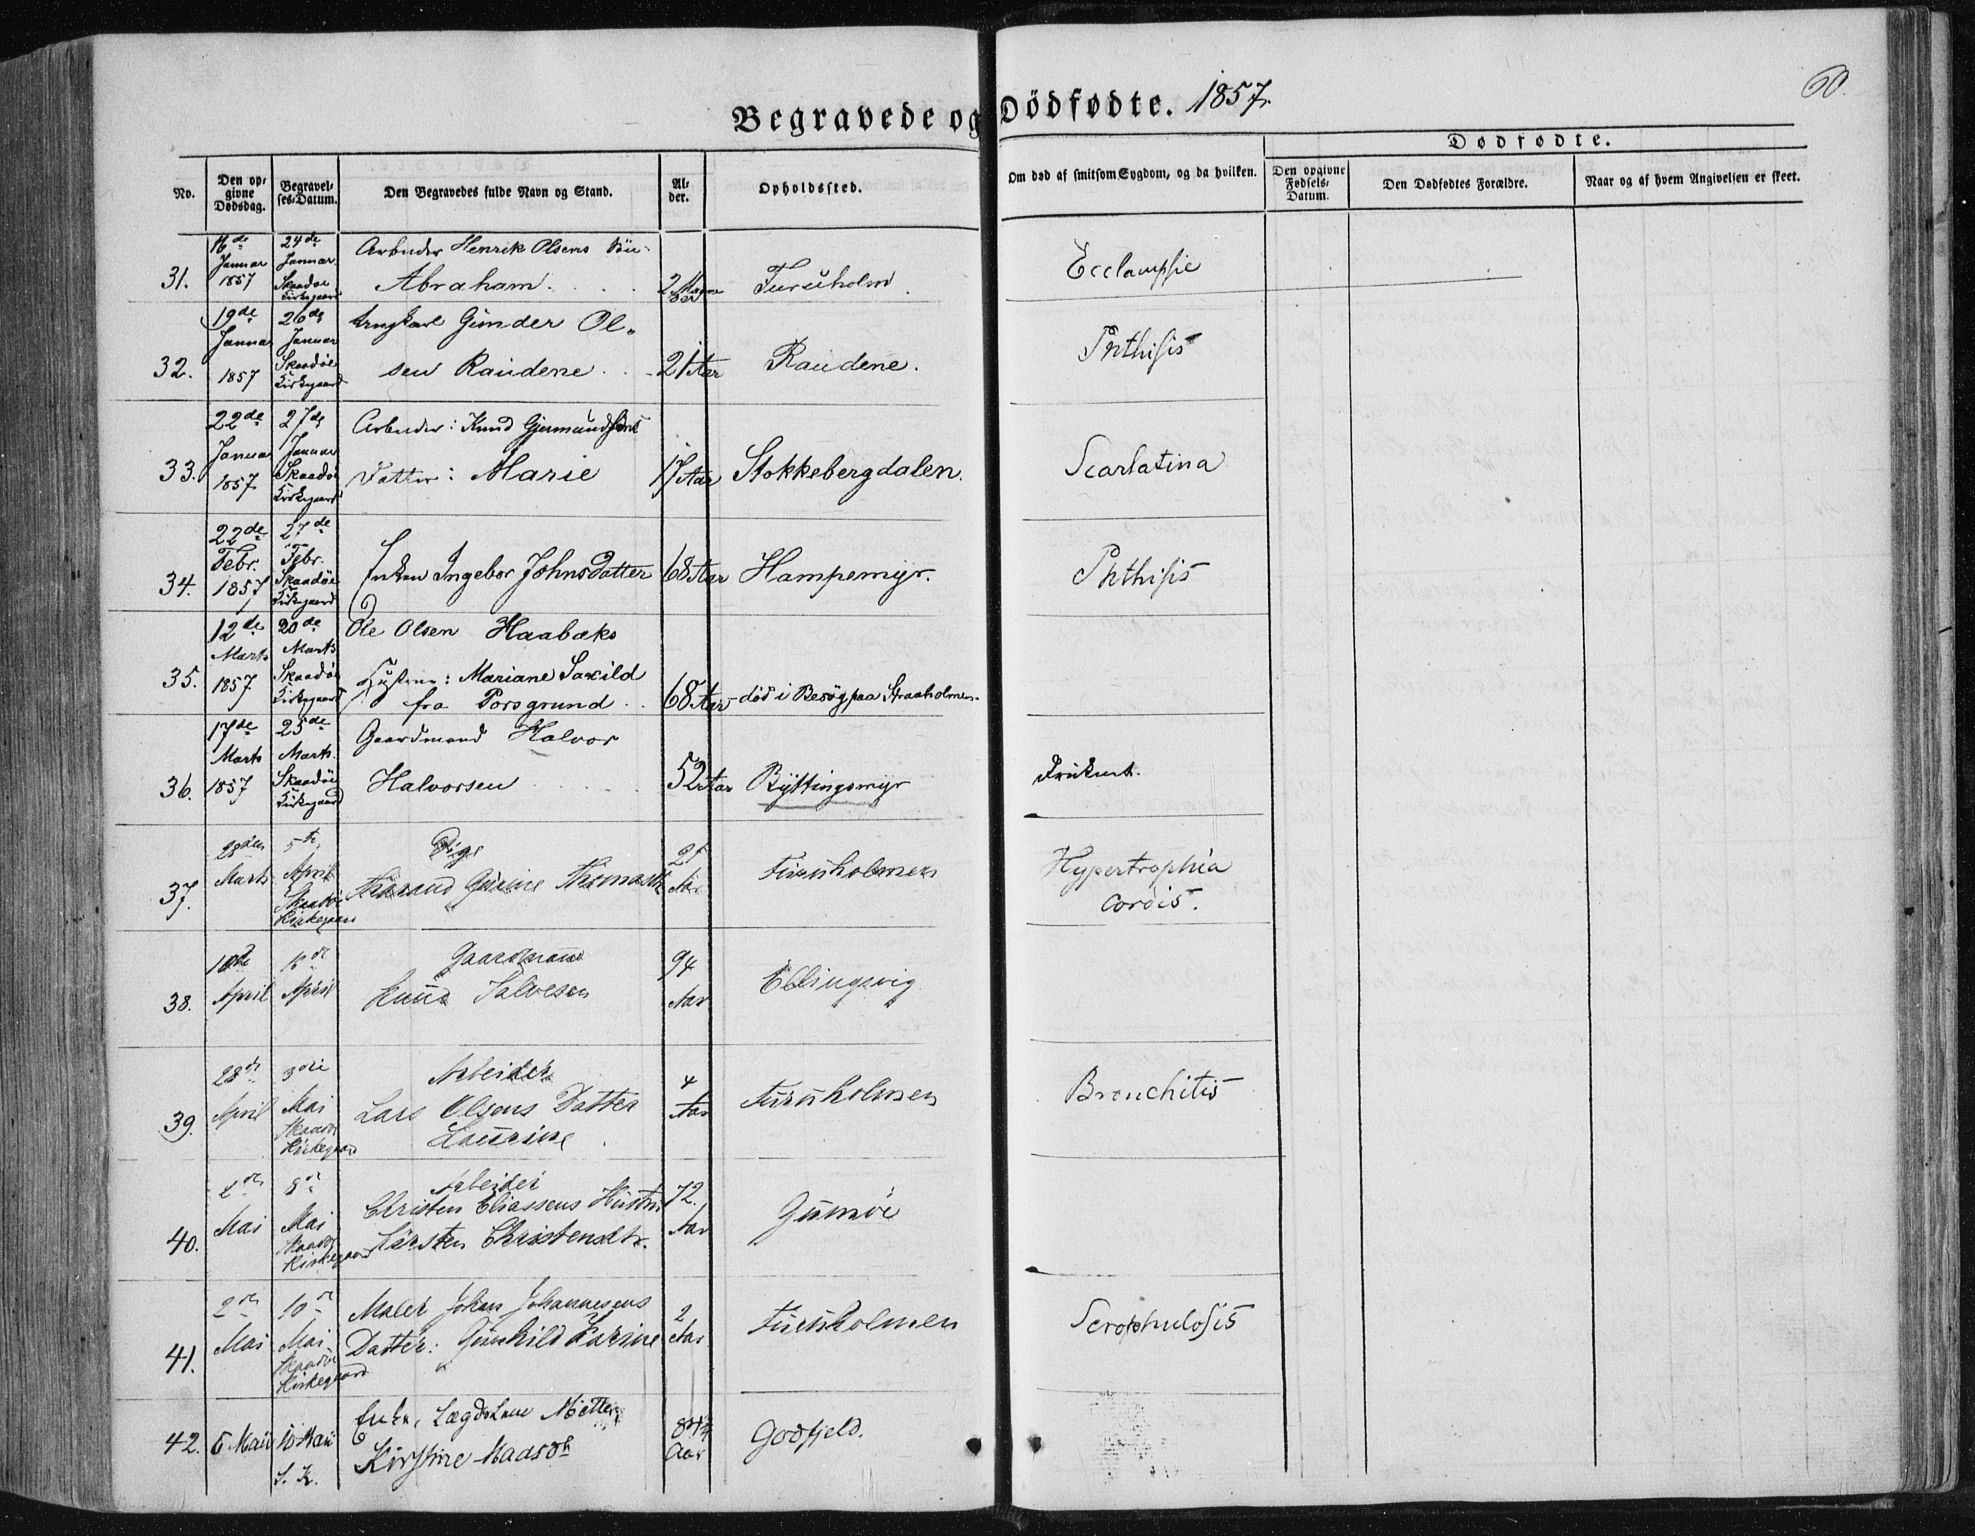 60.
Begravede og Dödfødte. 1857.
Dødfødte.
No.
Den opgivne Dødsdag.
Begravelses-Datum.
Den Begravedes fulde Navn og Stand.
Alder.
Opholdssted.
Om død af smitsom Sygdom, og da hvilken.
Den opgivne Fødsels-Datum.
Den Dødfødtes Forældre.
Naar og af hvem Angivelsen er skeet.
31.
16de Januar 1857
24de Januar Skaadøe Kirkegaard
Arbeider Henrik Olsens Søn
Abraham.
2
Furuholm.
Ecclampsie
32.
19de Januar 1857
26de Januar Skaadøe Kirkegaard
Ungkarl Gunder Ol-
sen Raudene
21 Aar
Raudene.
Phthisis
33.
22de Januar 1857
27de Januar Skaadøe Kirkegaard
Arbeider: Knud Gjermundsens
Datter: Marie
17 Aar
Stokkebergdalen.
Scarlatina
34.
22de Febr. 1857
27de Febr. Skaadøe Kirkegaard
Enken Ingebor Johnsdatter
68 Aar
Hampemyr.
Phthisis
35.
12de Marts 1857
20de Marts Skaadøe Kirkegaard
Ole Olsen Haabæks
Hustrue: Mariane Saxild
fra Porsgrund
68 Aar
død i Besøg paa Straaholmen.
36.
17de Marts 1857
25de Marts. Skaadøe Kirkegaard
Gaardmand Halvor
Halvorsen
52 Aar
Byttingsmyr
Druknet.
37.
28den Marts
5te April Skaadø Kirkegaard
Pige
Gurine Thomasdtr
21 Aar
Furuholmen
Hypertrophia
Cordis.
38.
10de April
April
Gaardmand
Knud Salvesen
94 Aar
Ellingsvig
39.
28de April
3die Mai Skaadø Kirkegaard
Arbeider
Lars Olsens Datter
Laurine
4 Aar
Furuholmen
Bronchitis
40.
Mai
8de Mai Skaadø Kirkegaard
Arbeider
Christen Eliassens Hustru
Kirsten Christensdtr.
72 Aar
Gumøe
41.
2den Mai
10de Mai Skaadøe Kirkegaard
Maler Johan Johannesens
Datter: Gunhild Karine
2 Aar
Furuholmen
Scrophulosis
42.
6 Mai
10 Mai S. K.
Enke, Lægdslem Mette
Kirstine Maasdtr
Aar
Godfjeld.